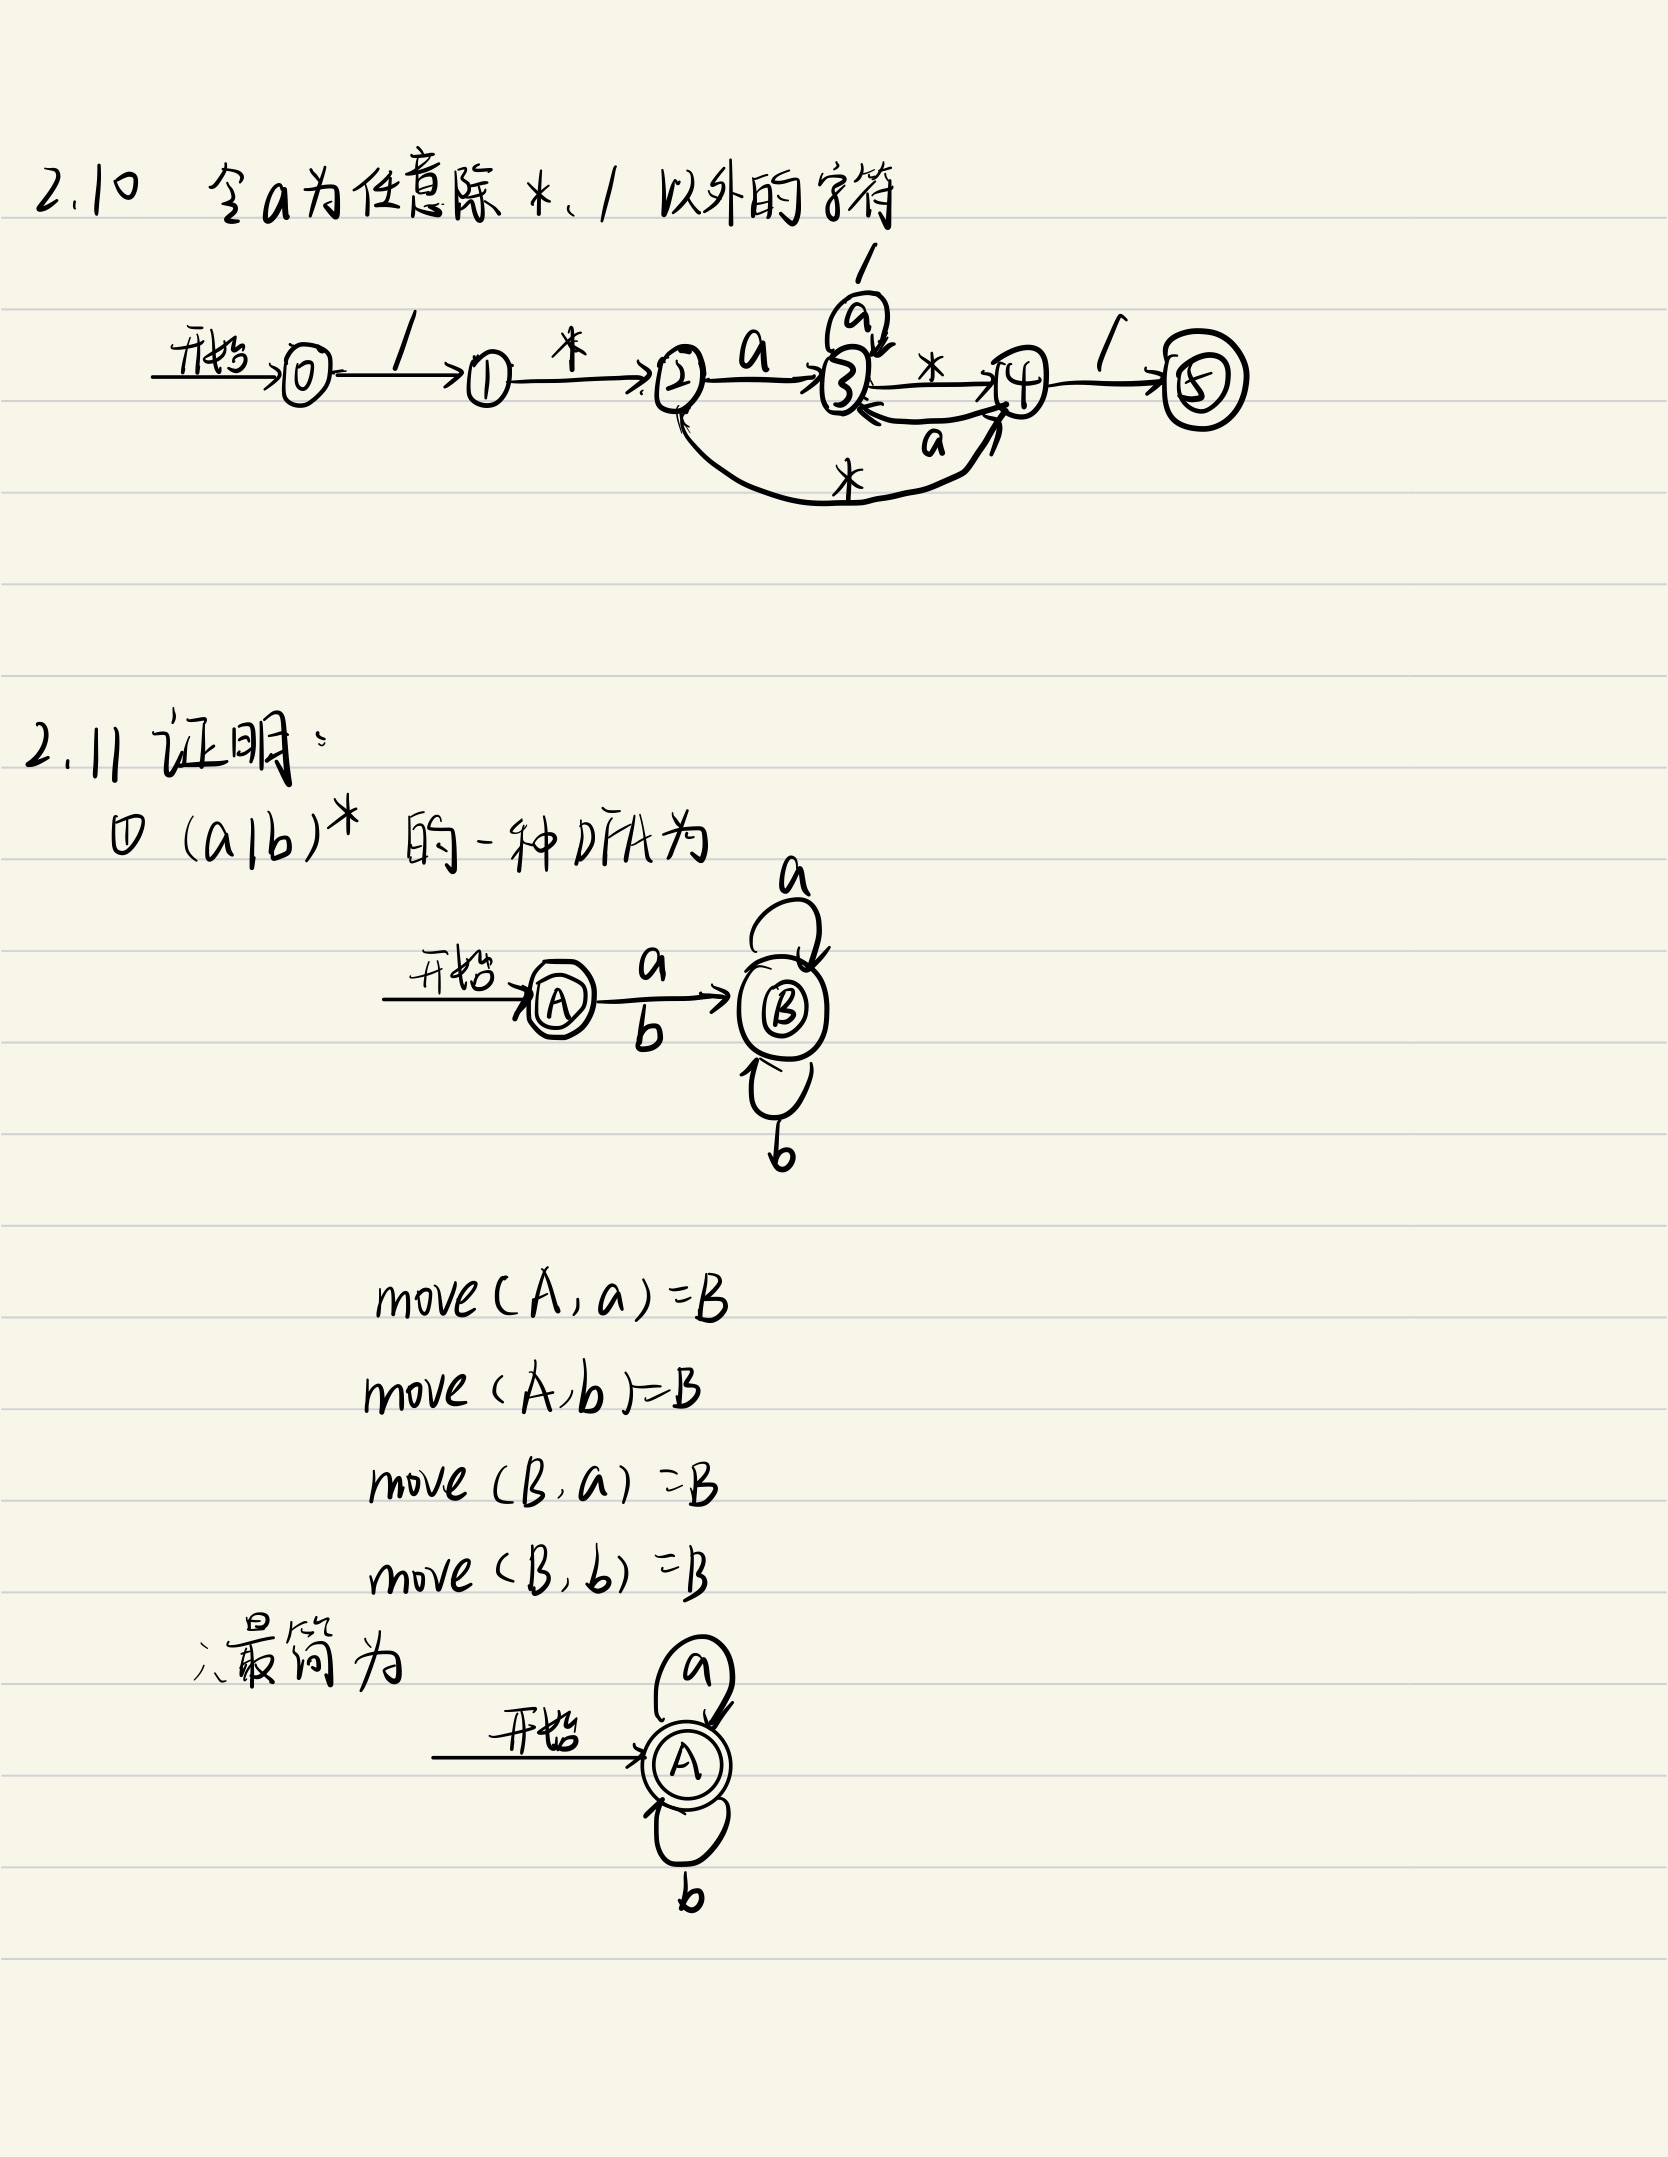 2.10 令a为任意除*、/以外的字符
/
开始 0 / 1 * 2 a 3 a * 4 / 5
a
*
2.11 证明:
① (a|b)* 的一种DFA为
a
开始 A a B
b
b
move(A,a)=B
move(A,b)=B
move(B,a)=B
move(B,b)=B
∴最简为
a
开始 A
b